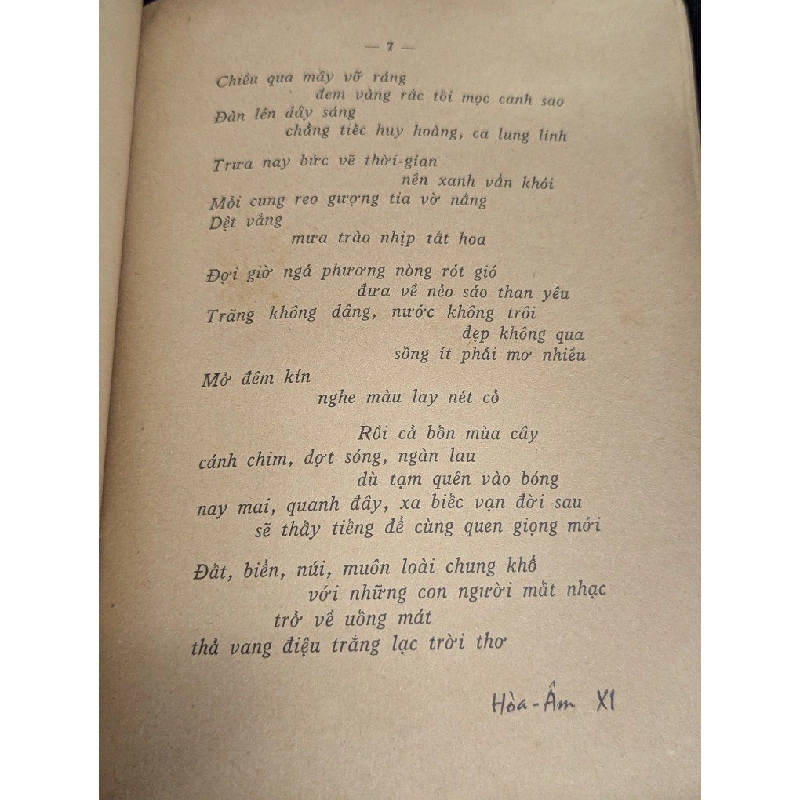 — 7 —
Chiều qua mây vỡ ráng
đem vàng rắc tôi mọc canh sao
Đàn lên dây sáng
chẳng tiếc huy hoàng, ca lung linh
Trưa nay bức vẽ thời-gian
nền xanh vẫn khói
Mỗi cung reo gượng tỉa vờ nắng
Dệt vắng
mưa trào nhịp tắt hoa
Đợi giờ ngả phương nòng rót gió
đưa về nẻo sáo than yêu
Trăng không dâng, nước không trôi
đẹp không qua
sống ít phải mơ nhiều
Mở đêm kín
nghe màu lay nét cỏ
Rồi cả bốn mùa cây
cánh chim, đợt sóng, ngàn lau
dù tạm quên vào bóng
nay mai, quanh đây, xa biếc vạn đời sau
sẽ thấy tiếng để cùng quen giọng mới
Đất, biển, núi, muôn loài chung khổ
với những con người mất nhạc
trở về uống mát
thả vang điệu trắng lạc trời thơ
Hòa-Âm XI